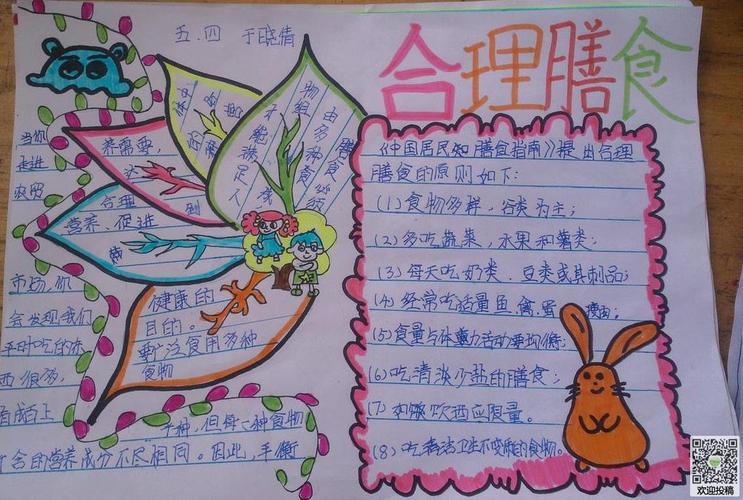 五.四 于晓倩
合理膳食
当你
走进
农贸
市场,你
会发现我们
平时吃的东
西很多,
有成百上
千种,但每一种食物
含的营养成分不尽相同。因此,平衡
膳食必须
由多种食
物组
才能满足人
体
的
养需要,
达 到
合理
营养、促进
健康的
目的。
要广泛食用多种
食物
《中国居民知膳食指南》提出合理
膳食的原则如下:
(1)食物多样,谷类为主;
(2)多吃蔬菜,水果和薯类;
(3)每天吃奶类、豆类或其制品;
(4)经常吃适量鱼、禽、蛋 瘦肉;
(5)食量与体重力活动要均衡;
(6)吃清淡少盐的膳食;
(7) 饮酒应限量。
(8)吃清洁卫生不变质的食物。
欢迎投稿